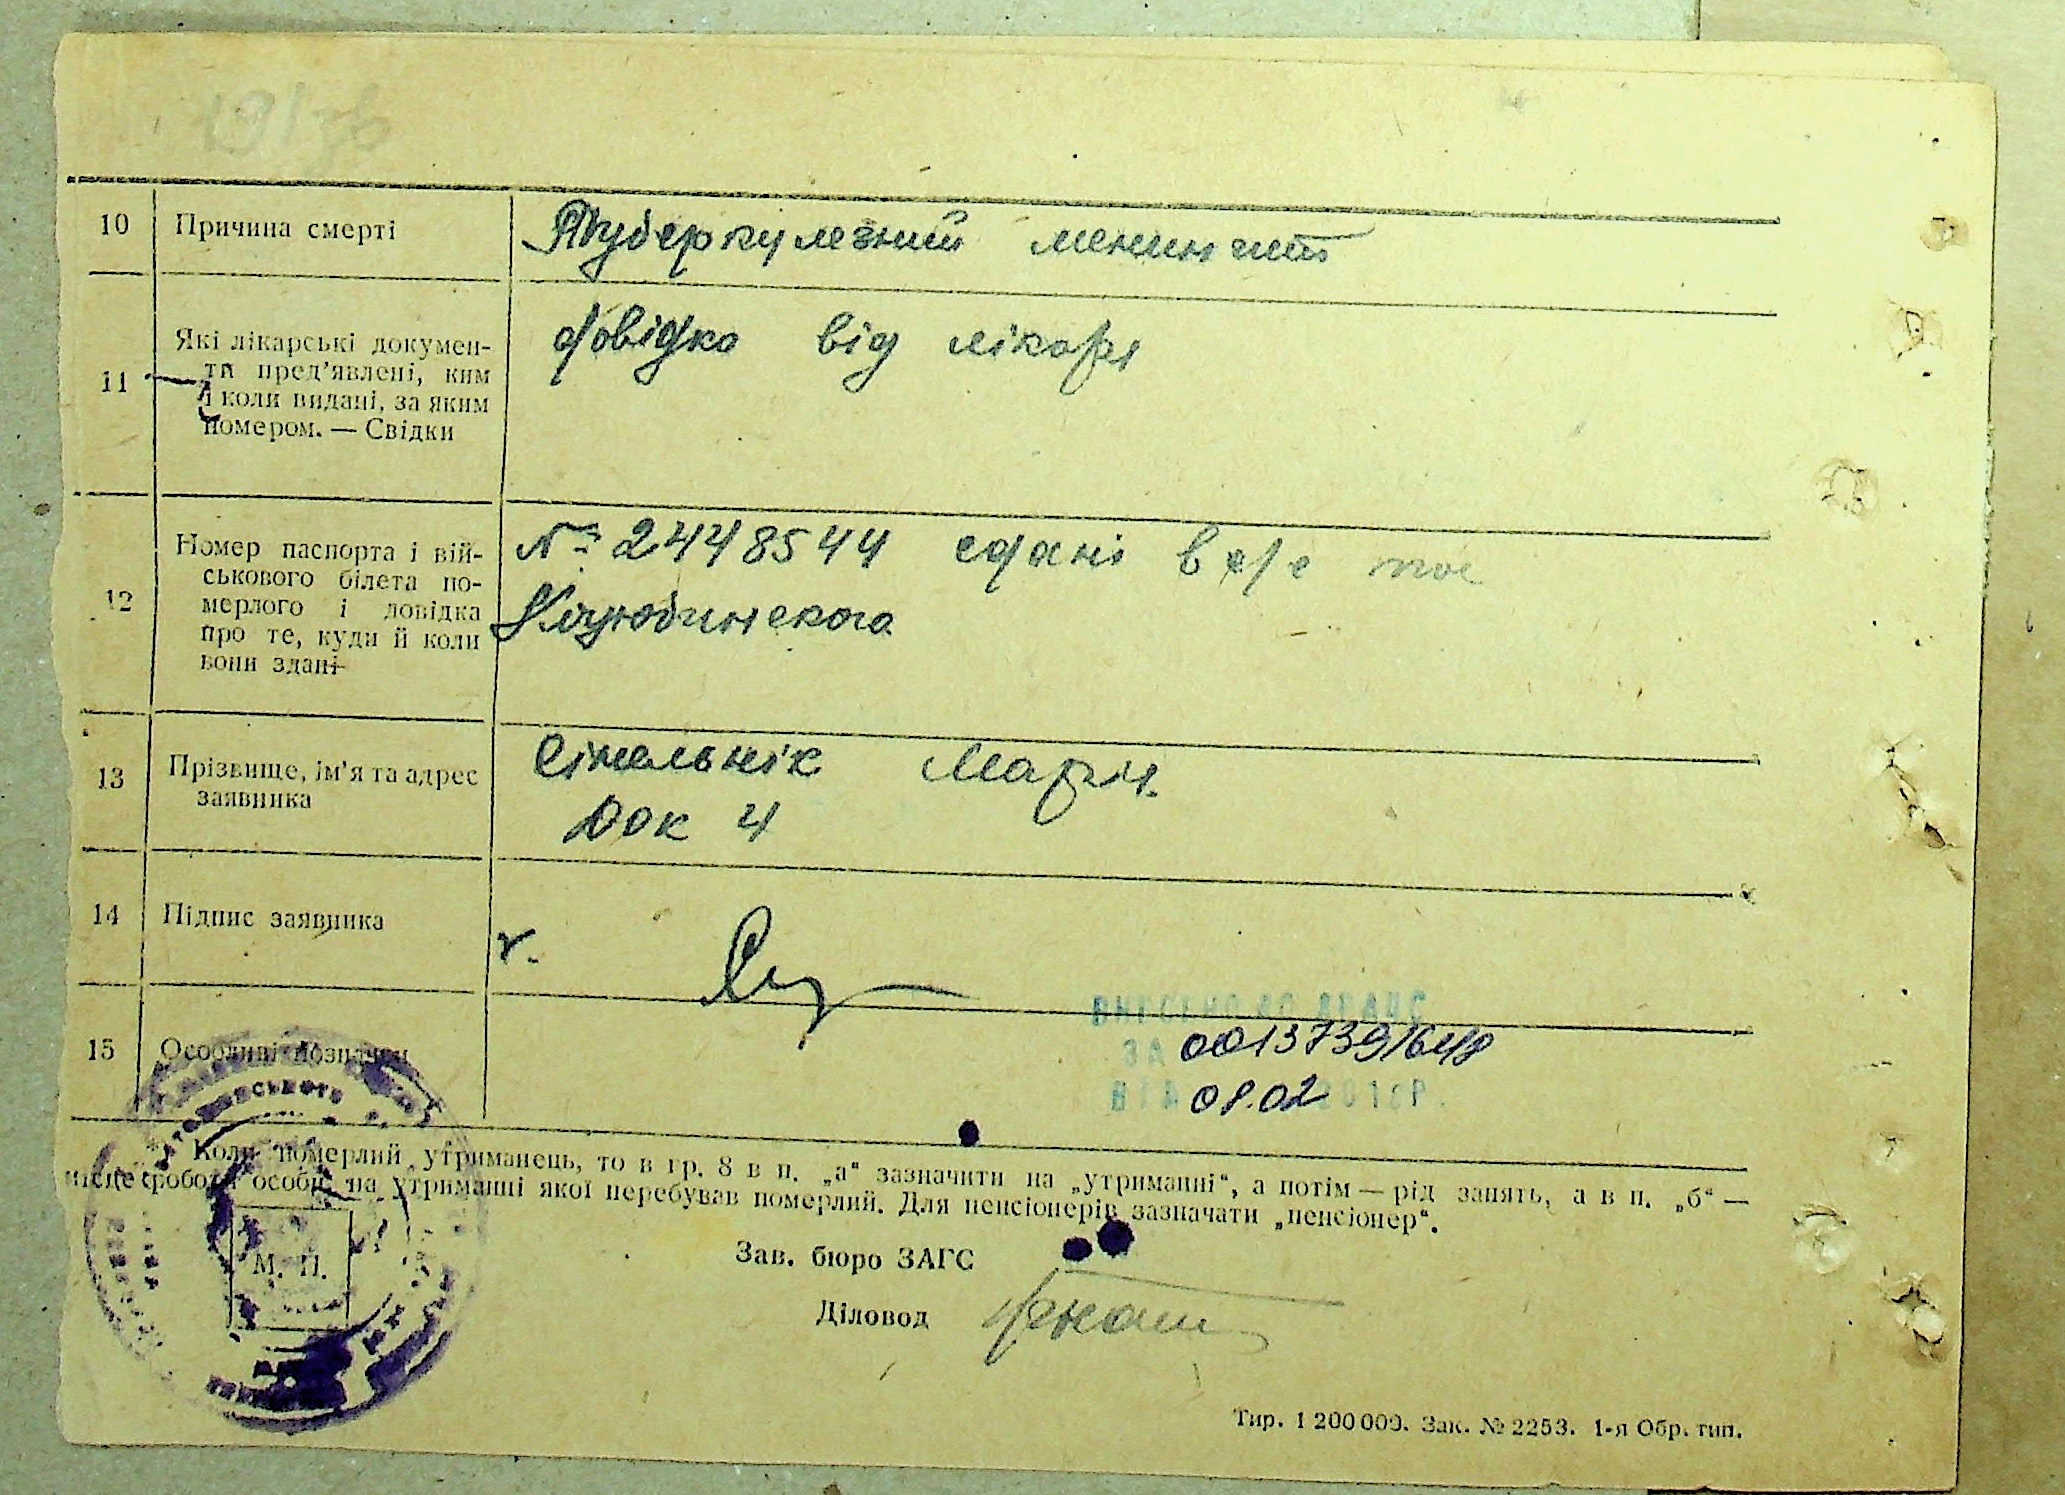 10 Причина смерті Туберкулезний менингит
11 Які лікарські докумен-
ти пред’явлені, ким
і коли видані, за яким
номером. — Свідки
довідка від лікаря
12 Номер паспорта і вій-
ськового білета по-
мерлого і довідка
про те, куди й коли
вони здані
№ 2448544 сдані в с/с
Коцюбинского
13 Прізвище, ім’я та адрес
заявника
Сітельнік Марія
Док 4
14 Підпис заявника
15 Особливі познач
00137391648
08.02
Коли померлий утриманець, то в гр. 8 в п. „а“ зазначити на „утриманні“, а потім — рід занять, а в п. „б“ —
місце роботи особи, на утриманні якої перебував померлий. Для пенсіонерів зазначати „пенсіонер“.
М. П.
Зав. бюро ЗАГС
Діловод
Тир. 1 200 000. Зак. № 2253. 1-я Обр. тип.